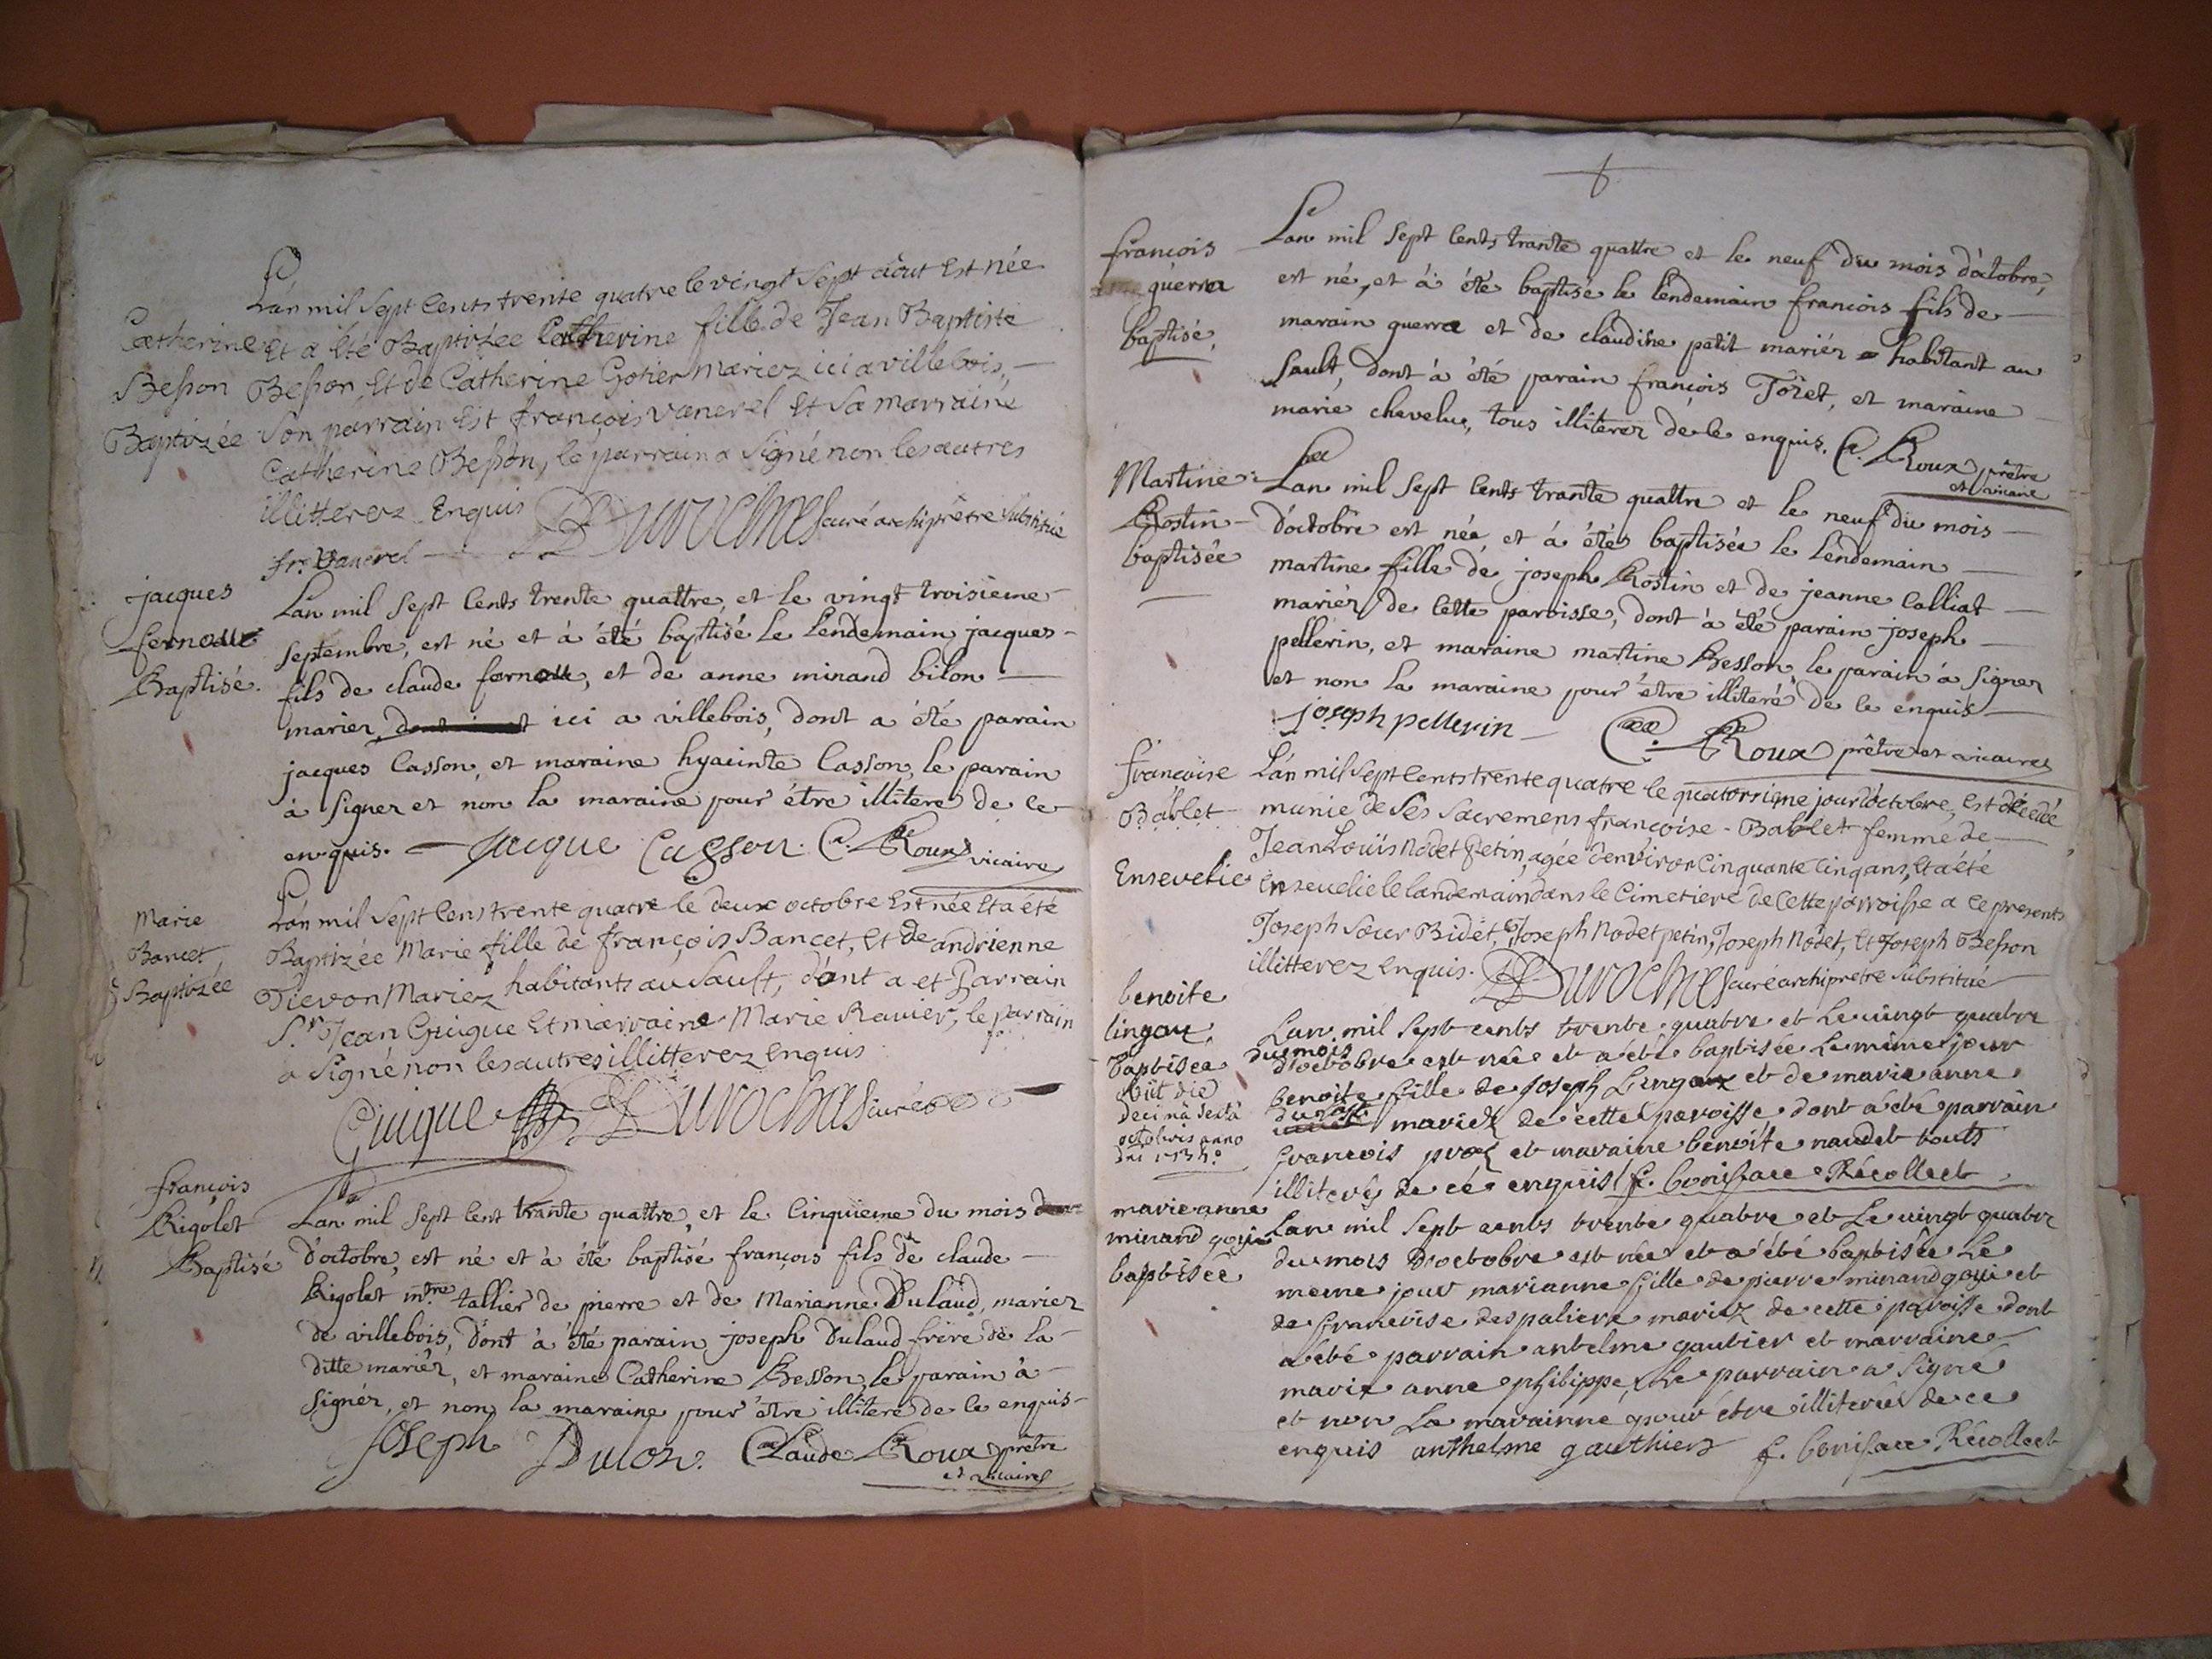 L'an mil Sept Cents trente quatre le vingt Sept août Est née
Catherine Et a Eté Baptizée Catherine fille de Jean Baptiste
Besson Besson, Et de Catherine Gotier Mariez ici a villebois,
Baptizée Son parrain Est françois vanerel Et Sa marraine
Catherine Besson, le parrain a Signé non les autres
illitterez Enquis Durochas curé archiprêtre substitué
fr. vanerel
jacques
fernoux
Baptisé.
Lan mil Sept Cents trente quattre, et le vingt troisieme
septembre, est né et à été baptisé le Lendemain jacques
fils de claude fernoux, et de anne minand bilon
marier, ici a villebois, dont a été parain
jacques Casson, et maraine hyacinte Casson, le parain
à Signer et non la maraine pour être illitere de ce
enquis. Jacque Casson. C. Roux vicaire
Marie
Bancet
Baptizée
L'an mil Sept Cens trente quatre le deux octobre Est née Et a été
Baptizée Marie fille de françois Bancet, Et de andrienne
Tievon Mariez habitants au Sault, dont a et Parrain
Sr. Jean Guigue Et marraine Marie Ravier, le parrain
a Signé non les autres illitterez Enquis
Guigue Durochas curé
françois
Rigolet
Baptisé
Lan mil Sept Cent trante quattre, et le Cinquieme du mois
d'octobre, est né et à été baptisé françois fils de claude
Rigolet mtre tallier de pierre et de Marianne Dulaud, mariez
de villebois, dont à été parain joseph Dulaud frere de la
ditte mariér, et maraine Catherine Besson, le parain à
Signér, et non la maraine pour être illiteré de ce enquis
Joseph Dulon. Claude Roux prêtre
et vicaire
françois
guerra
baptisé,
Lan mil Sept Cents trante quattre et le neuf du mois d'octobre,
est né, et à été baptisé le lendemain francois fils de
marain guerra et de claudine petit mariér habitant au
Sault, dont à été parain françois Toret, et maraine
marie chevelu, tous illiterez de ce enquis. C. Roux prêtre
et vicaire
Martine
Rostin
baptisée
Lan mil Sept Cents trante quattre et le neuf du mois
d'octobre est née, et à été baptisée le Lendemain
martine fille de joseph Rostin et de jeanne Calliat
mariér de Cette paroisse, dont à été parain joseph
pellerin, et maraine martine Besson, le parain à Signer
et non la maraine pour être illiteré de ce enquis
joseph pellerin C. Roux prêtre et vicaire
françoise
Bablet
Ensevelie
L'an mil Sept Cents trente quatre le quatorsieme jour d'octobre, Est décédé
munie de Ses Sacremens françoise Bablet femme de
Jean Loüis Nodet Petin, agée d'environ Cinquante Cinq ans, Et a été
Enseuelie le landemain dans le Cimetiere de Cette parroisse a ce presents
Joseph Sœur Bidet, Joseph Nodet petin, Joseph Nodet, Et Joseph Besson
illitterez Enquis. Durochas curé archiprêtre substitué
benoite
lingau,
baptisee
obiit die
decima sexta
octobris anno
Lan mil Sept cents trente quatre et Le vingt quatre
du mois
d'octobre est née et a été baptisée Le même jour
benoite fille de joseph Lingaux et de marie anne
mariez de cette paroisse dont a été parrain
francois et maraine benoite naudet touts
illiterés de ce enquis f. boniface Récollect
marie anne
minand goyi
baptisée
Lan mil Sept cents trente quatre et Le vingt quatre
du mois D'octobre est née et a été baptisée Le
meme jour marianne fille de pierre minand goyi et
de francoise despaliere mariez de cette paroisse dont
a été parrain antelme gautier et marraine
marie anne philippe, Le parrain a Signé
et non La marainne pour être illiterée de ce
enquis anthelme gauthier f. boniface Récollect